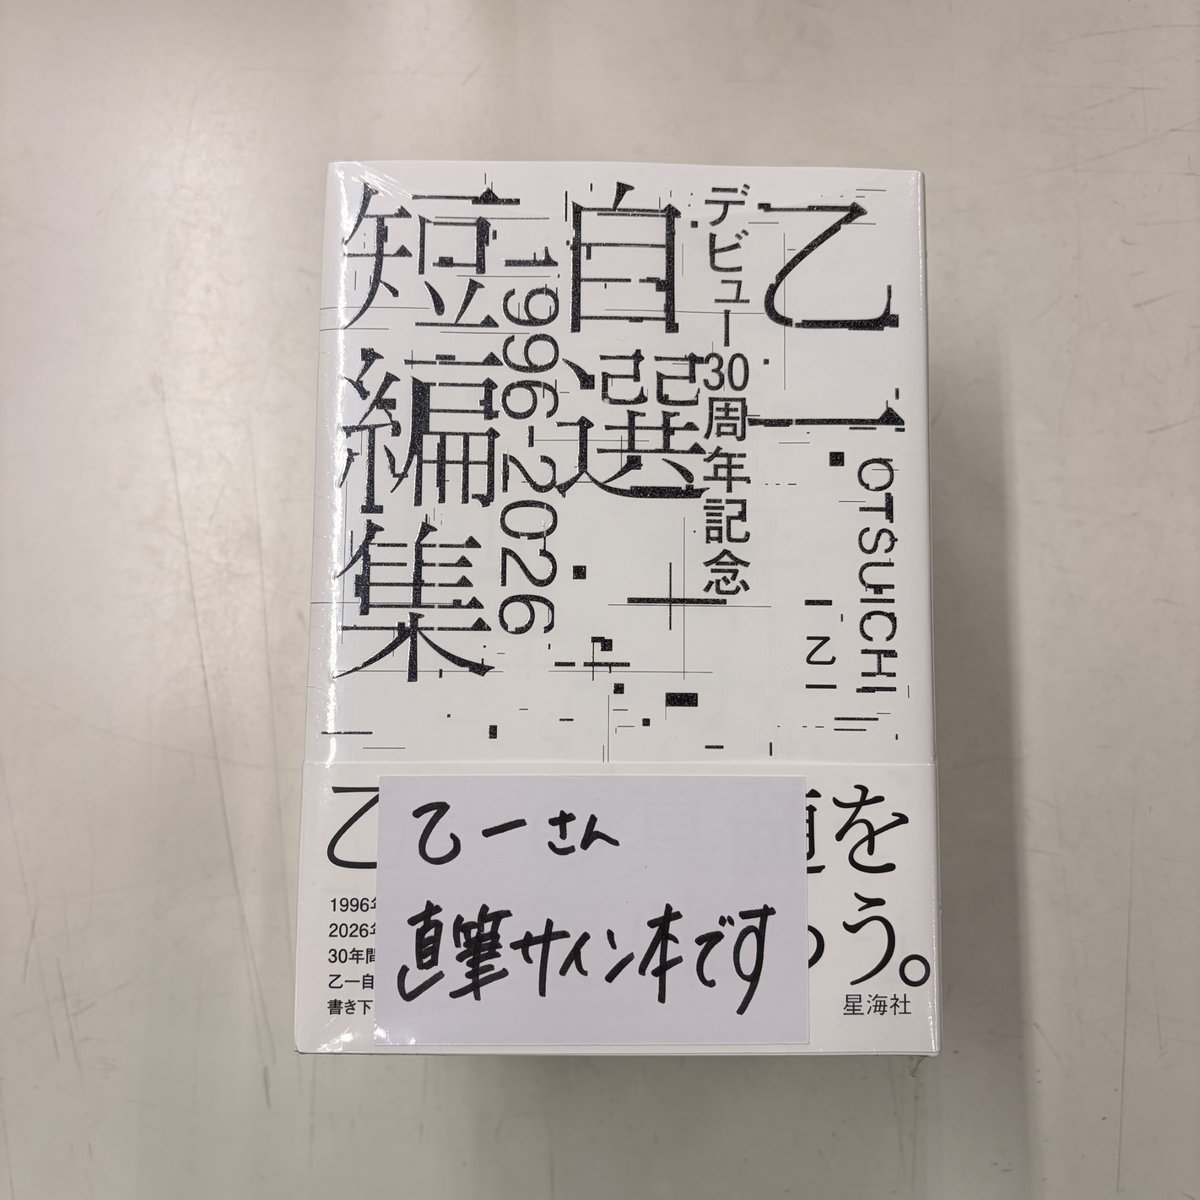 乙一
デビュー30周年記念
自選
1996-2026
短編集
OTSUICHI
乙一
乙
を
う。
1996
2026
30年間
乙一自
書き下
星海社
乙一さん
直筆サイン本です